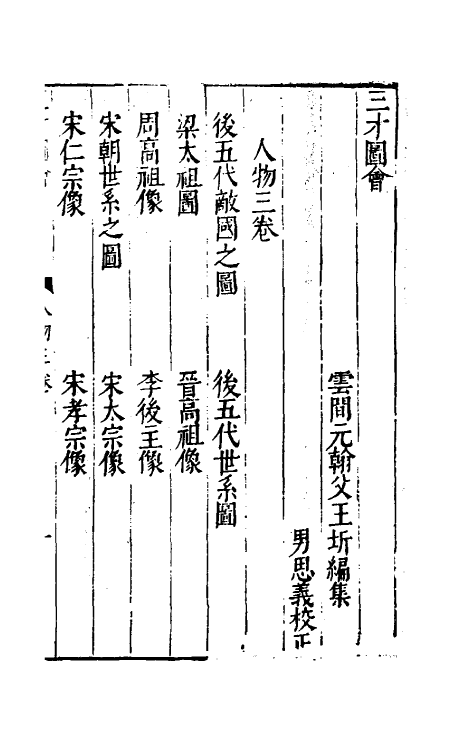 三才圖會
雲間元翰父王圻編集
男思義校正
人物三卷
後五代敵國之圖 後五代世系圖
梁太祖圖 晉高祖像
周高祖像 李後主像
宋朝世系之圖 宋太宗像
宋仁宗像 宋孝宗像
人物三卷 一